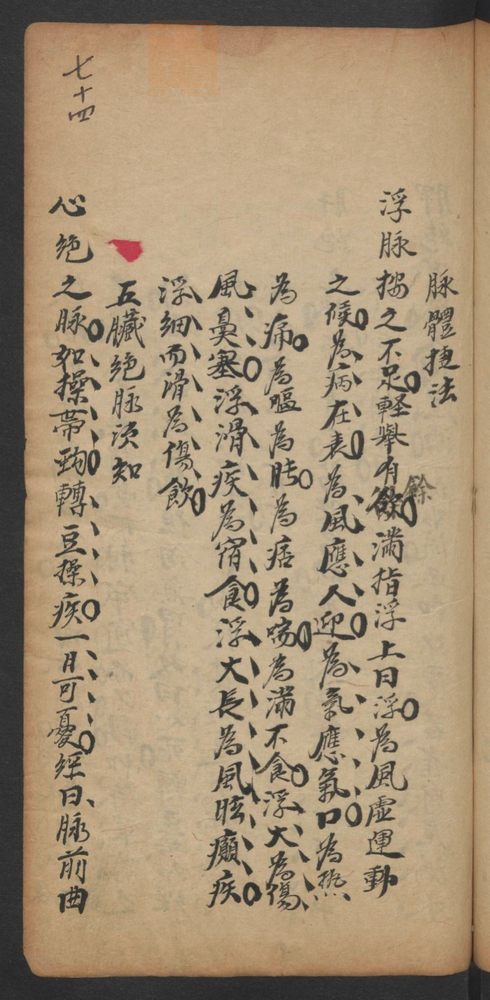 七十四
脉體捷法
浮脉按之不足軽舉有餘滿指浮上曰浮為風虛運動
之候為病在表為風應人迎為氣應氣口為熱
為痛為嘔為為痞為喘為滿不食浮大為傷
風鼻塞浮滑疾為宿食浮大長為風眩癲疾
浮細而滑為傷飲
五臟絕脉須知
心絕之脉如操帶鉤轉豆操疾一日可憂經曰脉前曲